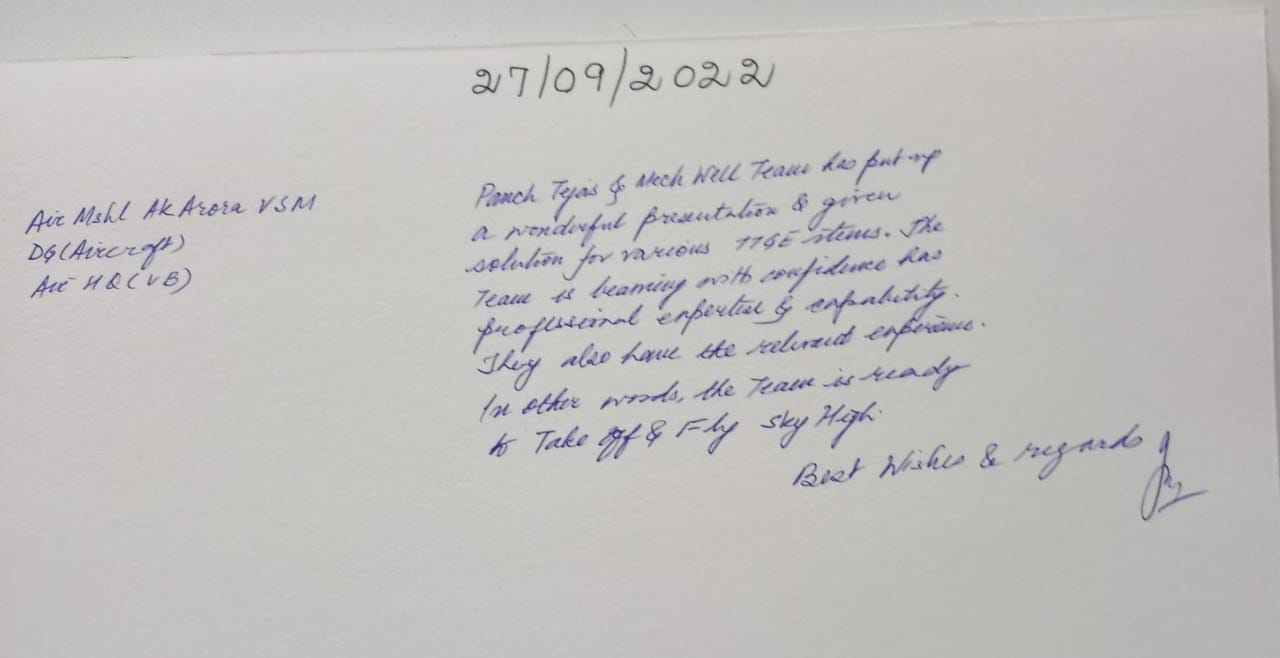 27/09/2022
Air Mshl AK Arora VSM
DG(Aircraft)
Air HQ(VB)
Panch Tejas & Mech Well Team has put up
a wonderful presentation & given
solution for various TTGE items. The
Team is beaming with confidence has
professional expertise & capability.
They also have the relevant experience.
In other words, the Team is ready
to Take off & Fly Sky High.
Best Wishes & regards